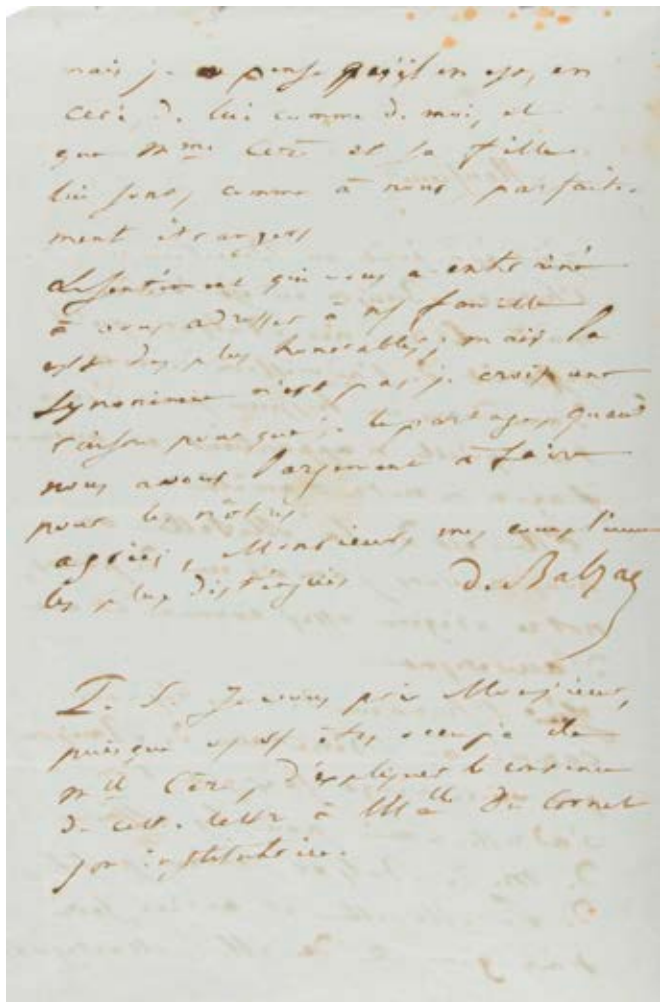 mais je pense qu'il en est, en
ceci de lui comme de moi, et
que Mme Cère et sa fille
lui sont, comme à nous parfaite-
ment étrangers
Le sentiment qui vous a entraîné
à vous adresser à ma famille
est des plus honorables; mais la
synonimie n'est pas, je crois, une
raison pour que je le partage, quand
nous avons largement à faire
pour les nôtres.
agréez, Monsieur, mes complimens
les plus distingués de Balzac
P. S. Je vous prie Monsieur,
puisque vous êtes occupé de
Mlle Cère, d'expliquer le contenu
de cette lettre à Mlle Du Cornet
son institutrice.